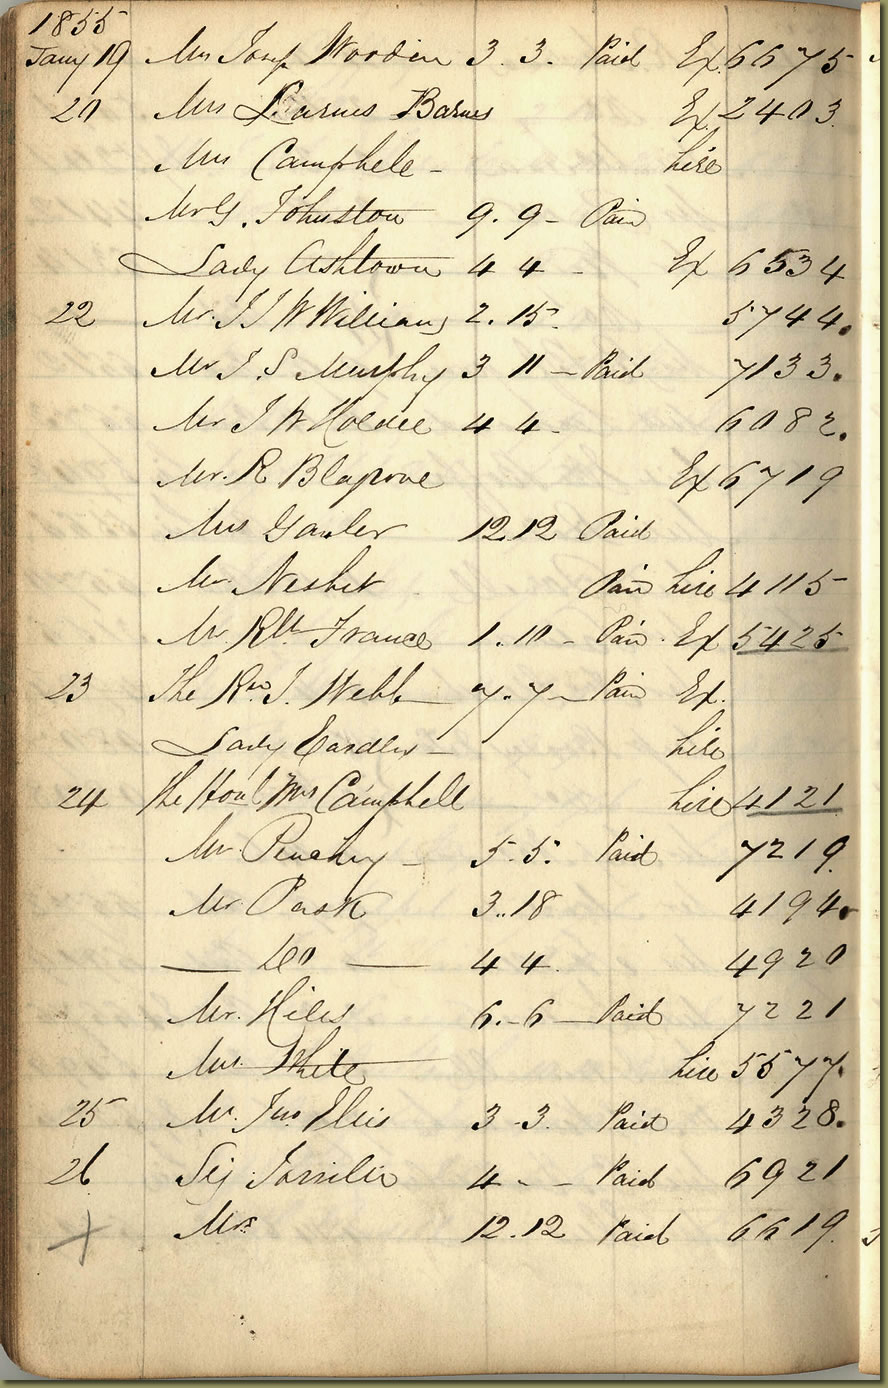 1855
Jany 19 Mr Josp Wooden 3. 3. Paid Ex. 6675
20 Mrs Barnes Ex. 2403
Mrs Campbele - hire
Mr G. Johnston 9. 9 - Paid
Lady Ashtown 4 4 - Ex 6534
22 Mr. J J W Williams 2. 15. 5744.
Mr J. S Murphy 3 11 - Paid 7133.
Mr J W Holder 4 4 - 6082.
Mr. R Blagrove Ex 6719
Mrs Gawler 12.12 Paid
Mr Nesbit Paid hire 4115
Mr Rt France 1. 10 - Paid. Ex 5425
23 The Rev J. Webb 7. 7 - Paid Ex.
Lady Eardley - hire
24 The Honl Mrs Campbell hire 4121
Mr - 5. 5. Paid 7219.
Mr. Pask 3..18 4194.
— Do — 4 4. 4920
Mr. Hiles 6. - 6 — Paid 7221
Mrs. White hire 5577.
25 Mr. Jno Ellis 3 - 3. Paid 4328.
26 Sig 4 - - Paid 6921
+ Mrs 12.12 Paid 6619.